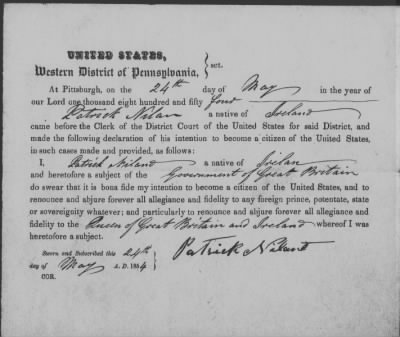 UNITED STATES,
Western District of Pennsylvania, } sct.
At Pittsburgh, on the 24th day of May in the year of
our Lord one thousand eight hundred and fifty four
Patrick Nilan a native of Ireland
came before the Clerk of the District Court of the United States for said District, and
made the following declaration of his intention to become a citizen of the United States,
in such cases made and provided, as follows:
I, Patrick Niland a native of Irelan
and heretofore a subject of the Government of Great Britain
do swear that it is bona fide my intention to become a citizen of the United States, and to
renounce and abjure forever all allegiance and fidelity to any foreign prince, potentate, state
or sovereignity whatever; and particularly to renounce and abjure forever all allegiance and
fidelity to the Queen of Great Britain and Ireland whereof I was
heretofore a subject.
Sworn and Subscribed this 24th
day of May A. D. 1854
COR.
Patrick Niland